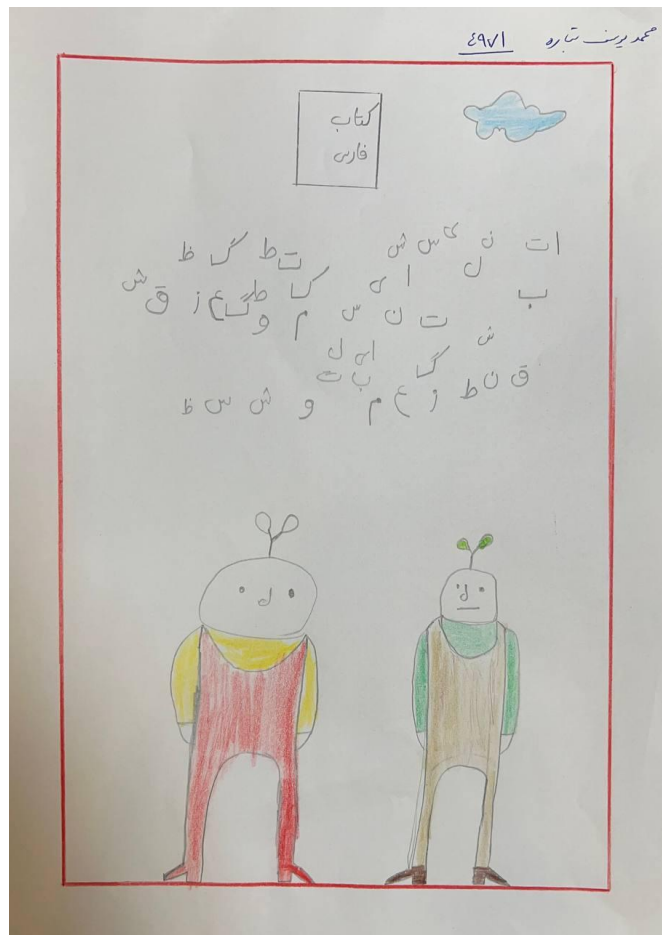 محمد یوسف تباره ٤٩٧١
کتاب
فارسی
ات ن ی س ش ت ط گ ظ
ب ل ا ی ک ط گ ع ز ق ش
ت ن س م و
ش گ ای ل
ق ن ط ز ع م ب ت و ش س ظ